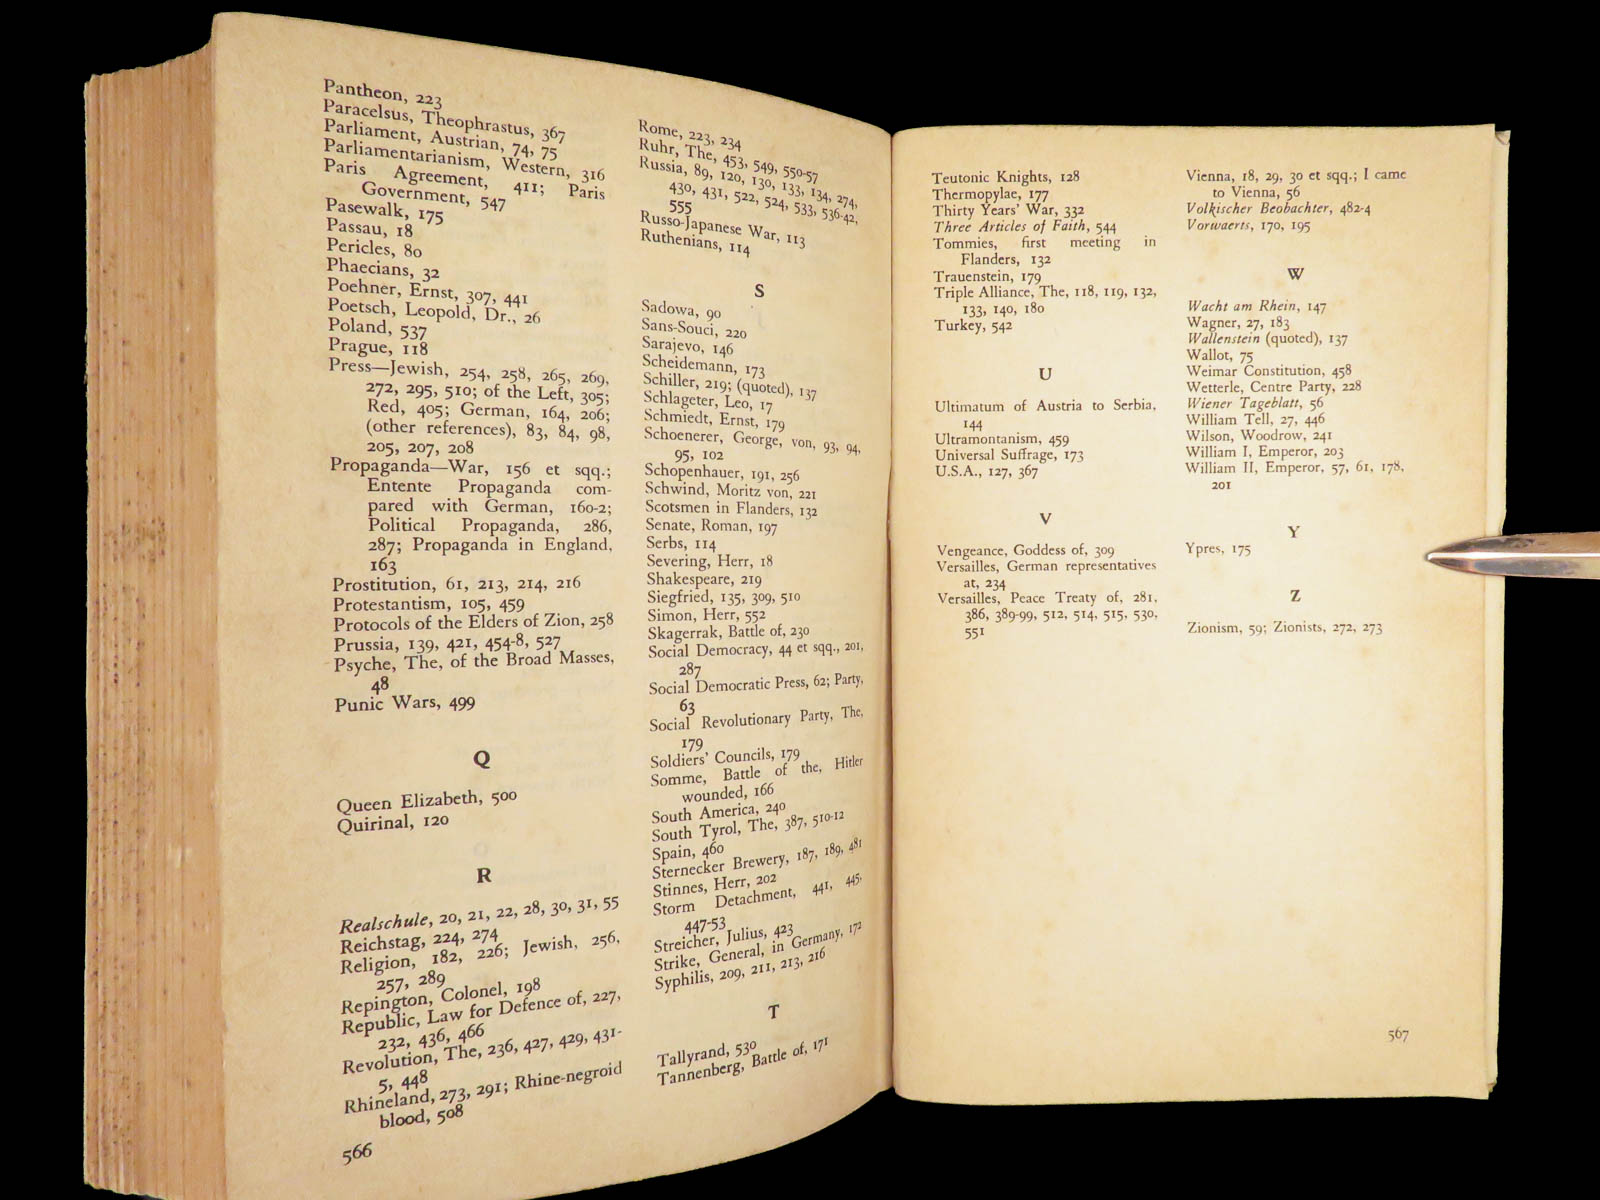 Pantheon, 223
Paracelsus, Theophrastus, 367
Parliament, Austrian, 74, 75
Parliamentarianism, Western, 316
Paris Agreement, 411; Paris
Government, 547
Pasewalk, 175
Passau, 18
Pericles, 80
Phaecians, 32
Poehner, Ernst, 307, 441
Poetsch, Leopold, Dr., 26
Poland, 537
Prague, 118
Press—Jewish, 254, 258, 265, 269,
272, 295, 510; of the Left, 305;
Red, 405; German, 164, 206;
(other references), 83, 84, 98,
205, 207, 208
Propaganda—War, 156 et sqq.;
Entente Propaganda com-
pared with German, 160-2;
Political Propaganda, 286,
287; Propaganda in England,
163
Prostitution, 61, 213, 214, 216
Protestantism, 105, 459
Protocols of the Elders of Zion, 258
Prussia, 139, 421, 454-8, 527
Psyche, The, of the Broad Masses,
48
Punic Wars, 499
Q
Queen Elizabeth, 500
Quirinal, 120
R
Realschule, 20, 21, 22, 28, 30, 31, 55
Reichstag, 224, 274
Religion, 182, 226; Jewish, 256,
257, 289
Repington, Colonel, 198
Republic, Law for Defence of, 227,
232, 436, 466
Revolution, The, 236, 427, 429, 431-
5, 448
Rhineland, 273, 291; Rhine-negroid
blood, 508
566
Rome, 223, 234
Ruhr, The, 453, 549, 550-57
Russia, 89, 120, 130, 133, 134, 274,
430, 431, 522, 524, 533, 536-42,
555
Russo-Japanese War, 113
Ruthenians, 114
S
Sadowa, 90
Sans-Souci, 220
Sarajevo, 146
Scheidemann, 173
Schiller, 219; (quoted), 137
Schlageter, Leo, 17
Schmiedt, Ernst, 179
Schoenerer, George, von, 93, 94,
95, 102
Schopenhauer, 191, 256
Schwind, Moritz von, 221
Scotsmen in Flanders, 132
Senate, Roman, 197
Serbs, 114
Severing, Herr, 18
Shakespeare, 219
Siegfried, 135, 309, 510
Simon, Herr, 552
Skagerrak, Battle of, 230
Social Democracy, 44 et sqq., 201,
287
Social Democratic Press, 62; Party,
63
Social Revolutionary Party, The,
179
Soldiers' Councils, 179
Somme, Battle of the, Hitler
wounded, 166
South America, 240
South Tyrol, The, 387, 510-12
Spain, 460
Sternecker Brewery, 187, 189, 481
Stinnes, Herr, 202
Storm Detachment, 441, 445,
447-53
Streicher, Julius, 423
Strike, General, in Germany, 172
Syphilis, 209, 211, 213, 216
T
Tallyrand, 530
Tannenberg, Battle of, 171
Teutonic Knights, 128
Thermopylae, 177
Thirty Years' War, 332
Three Articles of Faith, 544
Tommies, first meeting in
Flanders, 132
Trauenstein, 179
Triple Alliance, The, 118, 119, 132,
133, 140, 180
Turkey, 542
U
Ultimatum of Austria to Serbia,
144
Ultramontanism, 459
Universal Suffrage, 173
U.S.A., 127, 367
V
Vengeance, Goddess of, 309
Versailles, German representatives
at, 234
Versailles, Peace Treaty of, 281,
386, 389-99, 512, 514, 515, 530,
551
Vienna, 18, 29, 30 et sqq.; I came
to Vienna, 56
Volkischer Beobachter, 482-4
Vorwaerts, 170, 195
W
Wacht am Rhein, 147
Wagner, 27, 183
Wallenstein (quoted), 137
Wallot, 75
Weimar Constitution, 458
Wetterle, Centre Party, 228
Wiener Tageblatt, 56
William Tell, 27, 446
Wilson, Woodrow, 241
William I, Emperor, 203
William II, Emperor, 57, 61, 178,
201
Y
Ypres, 175
Z
Zionism, 59; Zionists, 272, 273
567